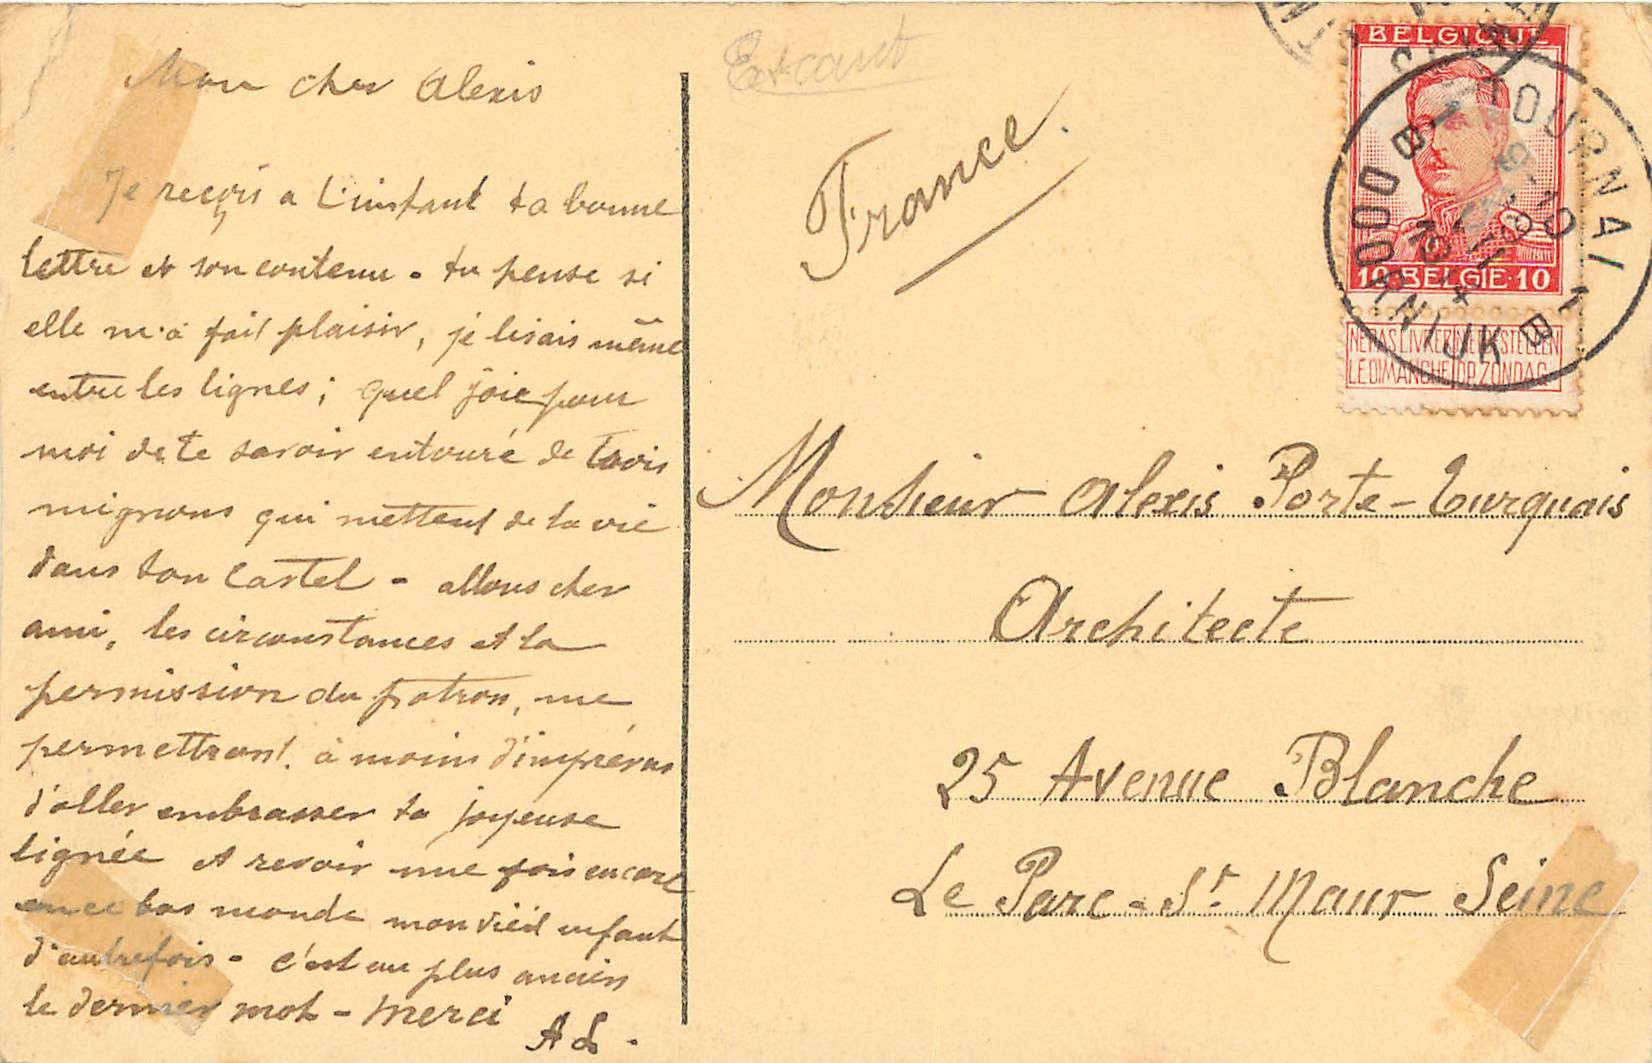 Mon cher Alexis
Je reçois a L'instant ta bonne
lettre et son contenu - tu pense si
elle m'a fait plaisir, je lisais même
entre les lignes; quel joie pour
moi de te savoir entouré de trois
mignons qui mettent de la vie
dans ton castel - allons cher
ami, les circonstances et la
permission du patron, me
permettront, à moins d'imprévus
d'aller embrasser ta joyeuse
lignée et revoir une fois encore
en ce bas monde mon vieil enfant
d'autrefois - c'est au plus ancien
le dernier mot - merci
A L.
France.
BELGIQUE
10 BELGIE 10
NE PAS LIVRER NIET BESTELLEN
LE DIMANCHE OP ZONDAG
TOURNAI 1
B B
DOORNIJK
9-10
1914
Monsieur Alexis Porte-Turquais
Architecte
25 Avenue Blanche
Le Parc - St. Maur Seine